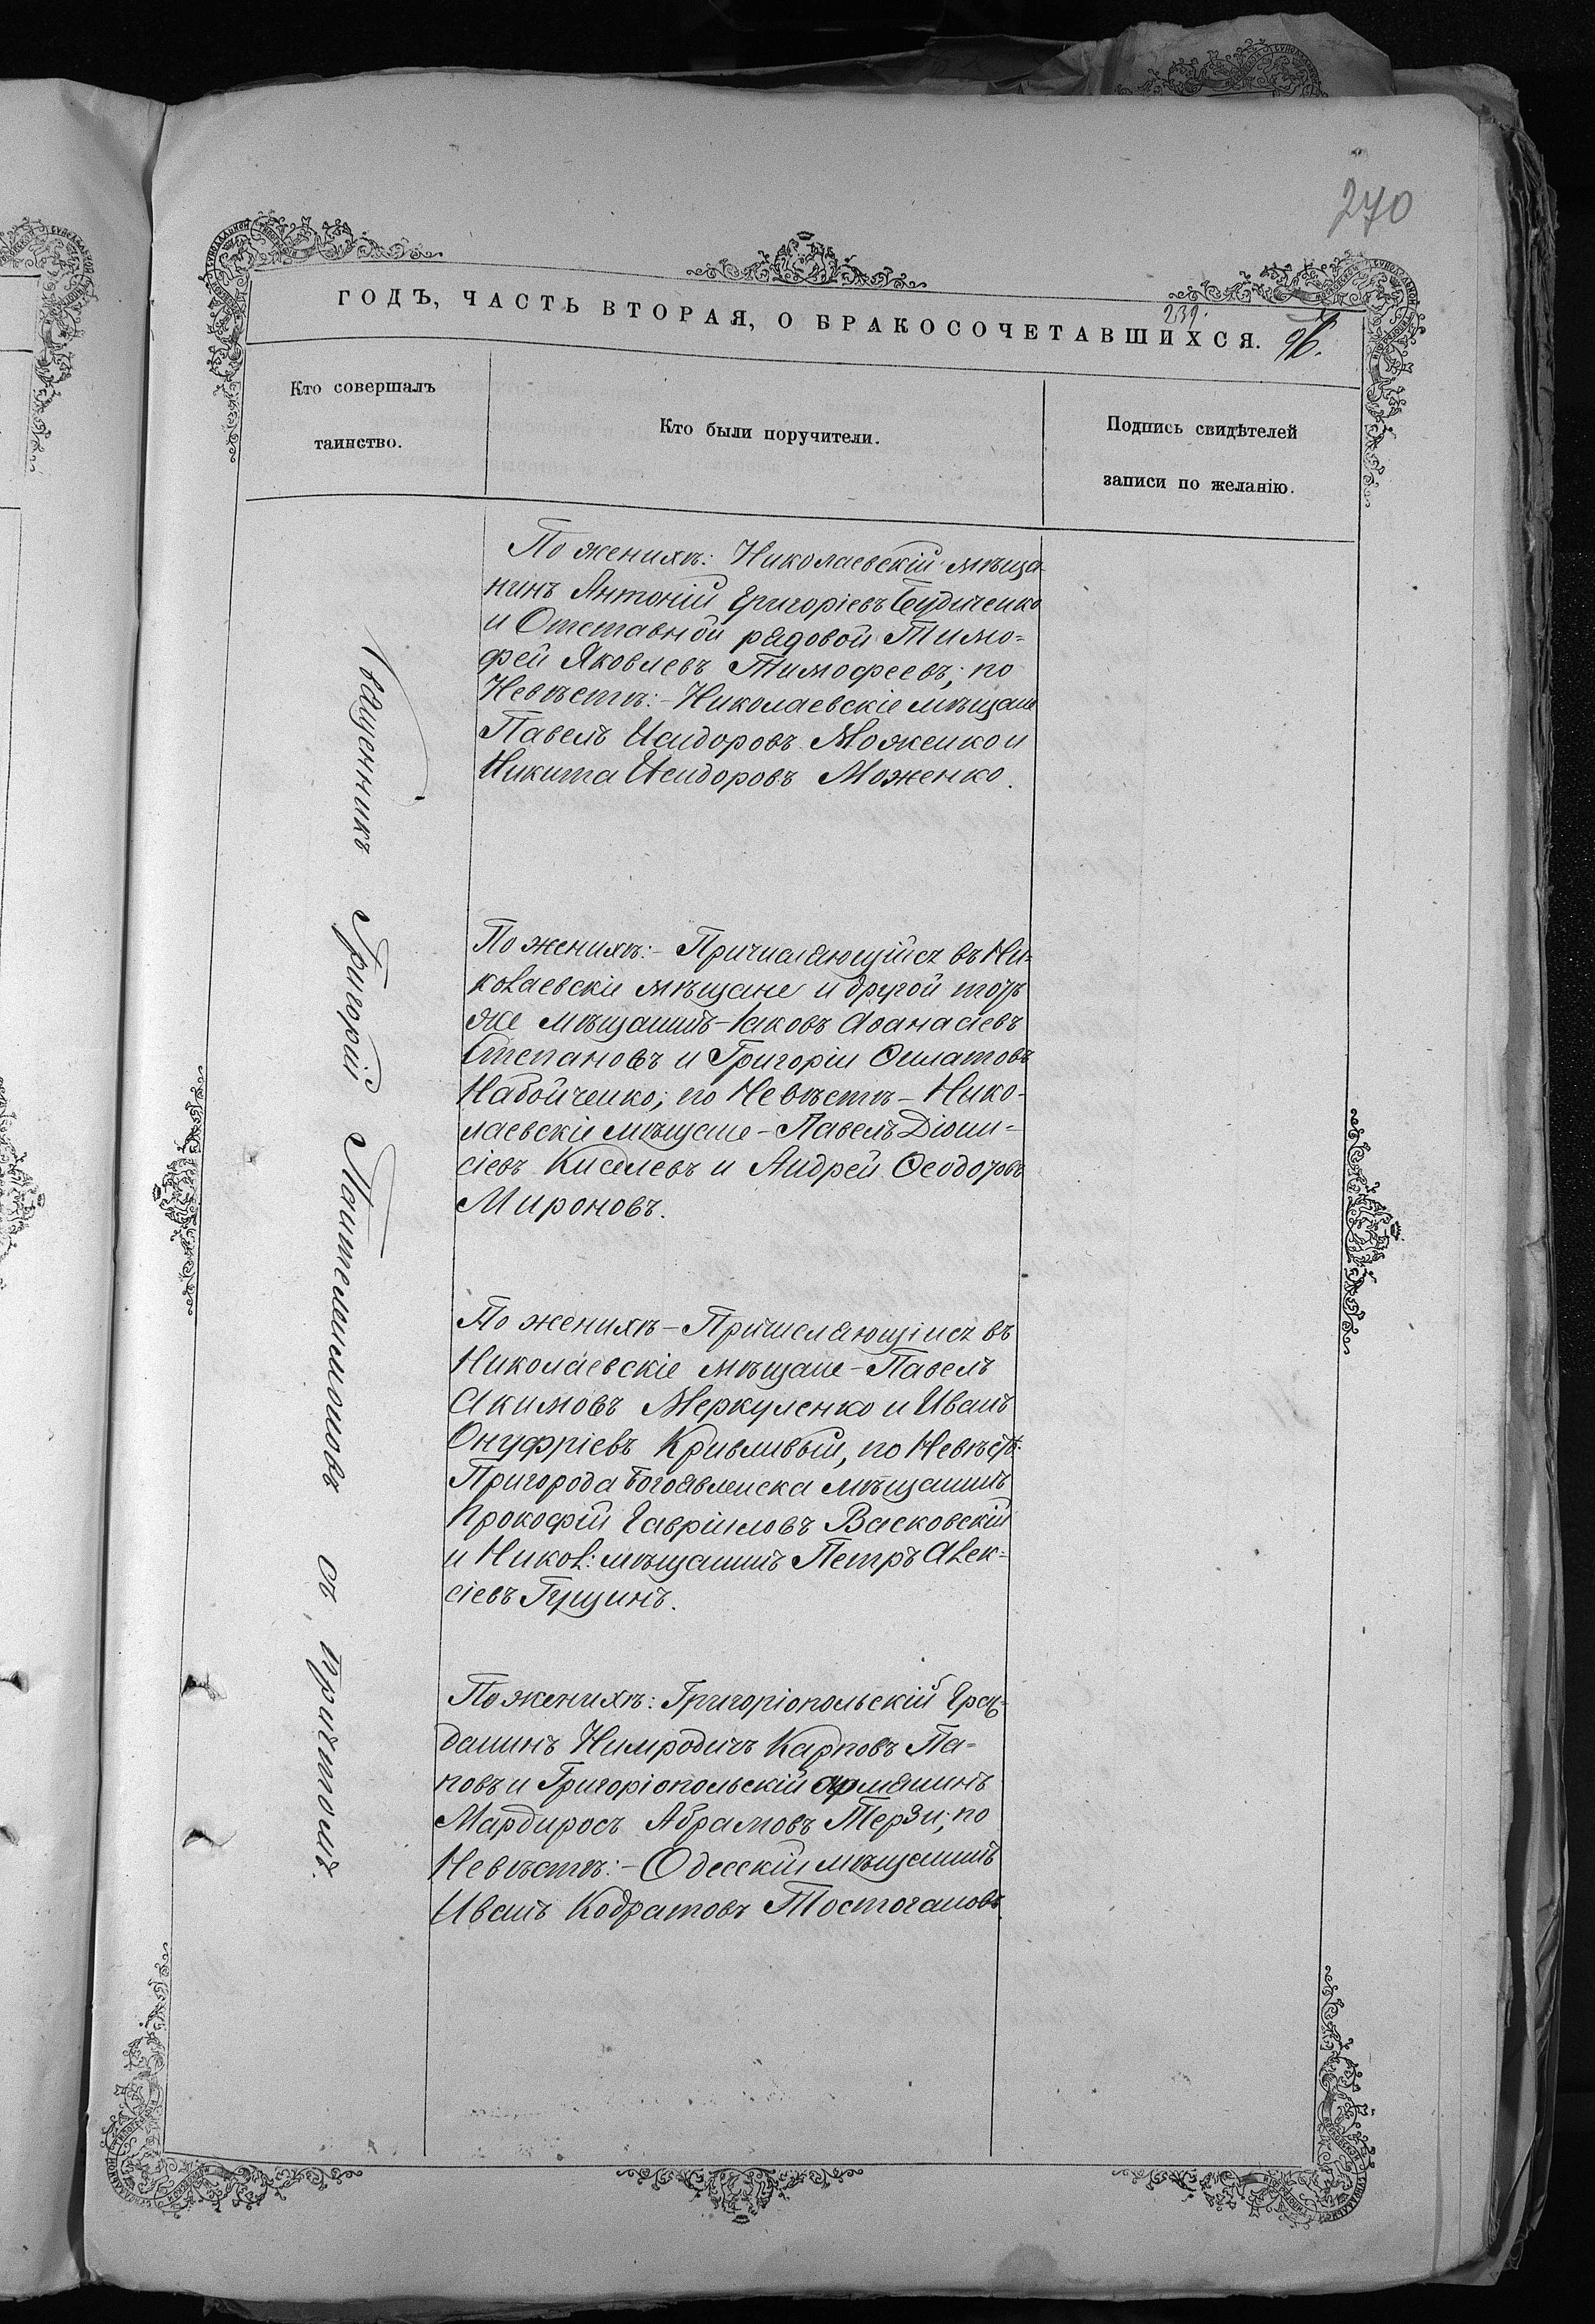 270
239.
ГОДЪ, ЧАСТЬ ВТОРАЯ, О БРАКОСОЧЕТАВШИХСЯ. 96.
Кто совершалъ
таинство.
Кто были поручители.
Подпись свидѣтелей
записи по желанію.
Священникъ Григорій Пантелеимоновъ съ причтомъ.
По женихѣ: Николаевскій мѣща-
нинъ Антоній Григоріевъ
и Отставной рядовой Тимо=
фей Яковлевъ Тимофеевъ; по
Невѣстѣ:- Николаевскіе мѣщане
Павелъ Исидоровъ Моженко и
Никита Исидоровъ Моженко.
По женихѣ:- Причисляющійся въ Ни=
колаевскіе мѣщане и другой тотъ
же мѣщанинъ - Іаковъ Аѳанасіевъ
Степановъ и Григорій
Набойченко; по Невѣстѣ - Нико-
лаевскіе мѣщане - Павелъ Діони=
сіевъ Киселевъ и Андрей Ѳеодоровъ
Мироновъ.
По женихѣ - Причисляющіися въ
Николаевскіе мѣщане - Павелъ
Акимовъ Меркуленко и Иванъ
Онуфріевъ Кривливый, по Невѣстѣ:
Пригорода Богоявленска мѣщанинъ
Прокофій Гавріиловъ Васковскій
и Никол: мѣщанинъ Петръ Алек=
сіевъ Гущинъ.
По женихѣ: Григоріопольскій Граж=
данинъ Нимродичъ Карповъ По=
повъ и Григоріопольскій армянинъ
Мардиросъ Абрамовъ Терзи; по
Невѣстѣ:- Одесскій мѣщанинъ
Иванъ Кодратовъ Тостогановъ.